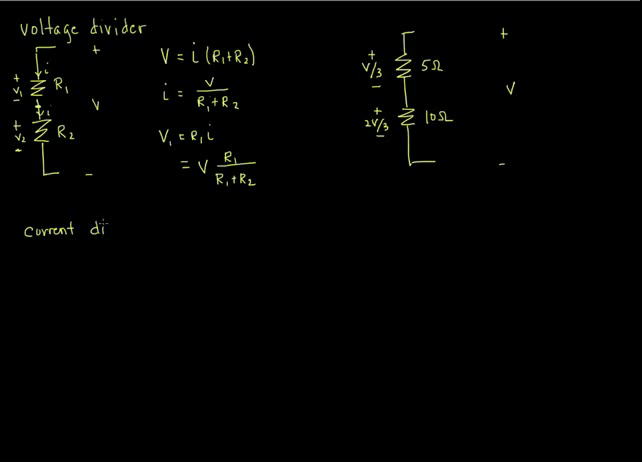 voltage divider
+
i
+
V₁
−
R₁
i
+
V₂
−
R₂
V
−
V = i (R₁+R₂)
i = V / R₁+R₂
V₁ = R₁ i
= V R₁ / R₁+R₂
+
V/3
−
5Ω
+
2V/3
−
10Ω
+
V
−
current di